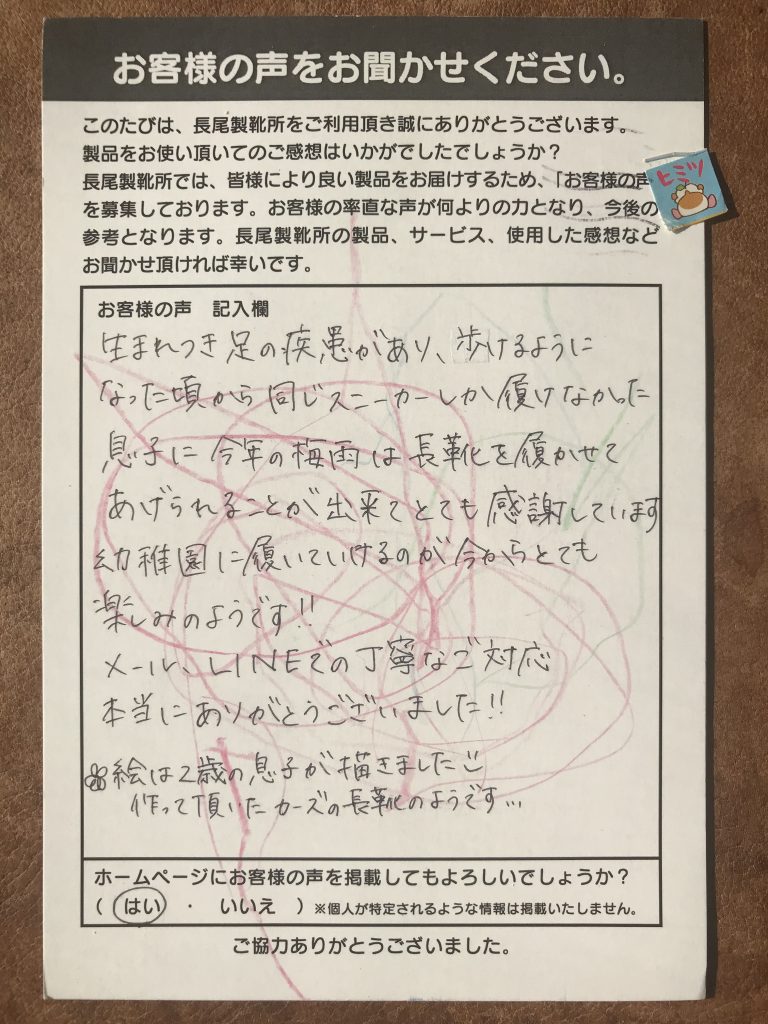 お客様の声をお聞かせください。
このたびは、長尾製靴所をご利用頂き誠にありがとうございます。
製品をお使い頂いてのご感想はいかがでしたでしょうか？
長尾製靴所では、皆様により良い製品をお届けするため、「お客様の声
を募集しております。お客様の率直な声が何よりの力となり、今後の
参考となります。長尾製靴所の製品、サービス、使用した感想など
お聞かせ頂ければ幸いです。
ヒミツ
お客様の声　記入欄
生まれつき足の疾患があり、歩けるように
なった頃から同じスニーカーしか履けなかった
息子に今年の梅雨は長靴を履かせて
あげられることが出来てとても感謝しています
幼稚園に履いていけるのが今からとても
楽しみのようです!!
メール、LINEでの丁寧なご対応
本当にありがとうございました!!
絵は2歳の息子が描きました
作って頂いたカーズの長靴のようです…
ホームページにお客様の声を掲載してもよろしいでしょうか？
（　はい　・　いいえ　）※個人が特定されるような情報は掲載いたしません。
ご協力ありがとうございました。